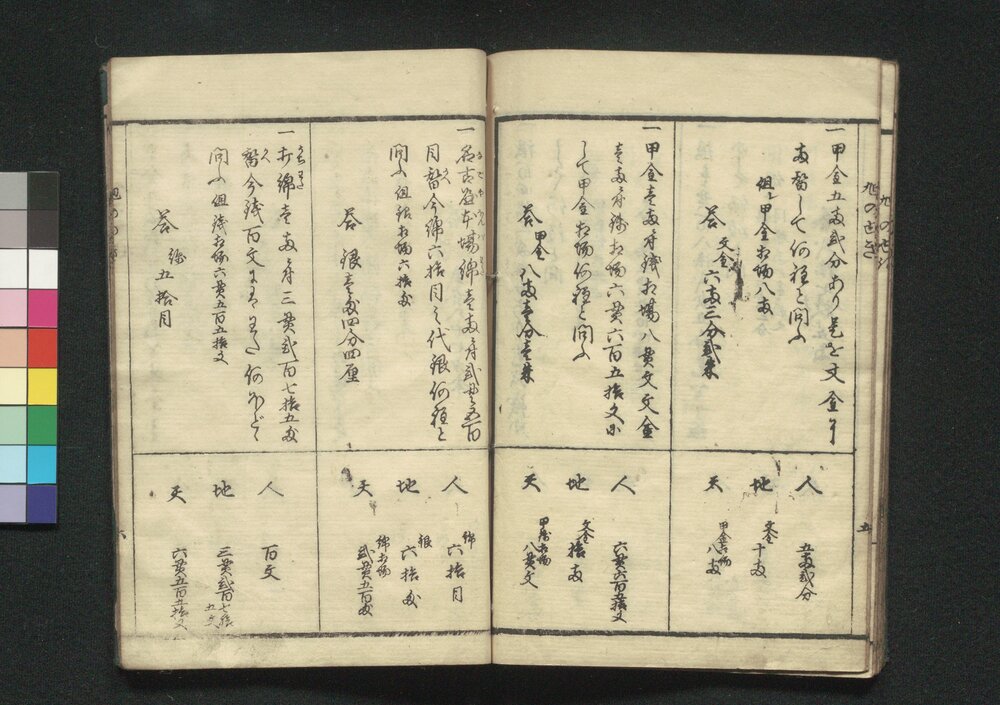 一甲金五両弐分あり是を文金に
両替して何程と問ふ
但し甲金相場八両
答 文金 六両三分弐朱
人 五両弐分
地 文金 十両
天 甲金相場 八両
一甲金壱両ニ付銭相場八貫文文金
壱両ニ付銭相場六貫六百五拾文ニ
して甲金相場何程と問ふ
答 甲金 八両壱分壱朱
人 六貫六百五拾文
地 文金 拾両
天 甲銭相場 八貫文
一名古屋本場綿壱両ニ付弐貫五百
目替今綿六拾目之代銀何程と
問ふ但銀相場六拾匁
答 銀壱匁四分四厘
人 綿 六拾目
地 銀 六拾匁
天 綿相場 弐貫五百匁
一打綿壱両ニ付三貫弐百七拾五匁
替今銭百文にはわた何ほどゝ
問ふ但銭相場六貫五百五拾文
答 五拾目
人 百文
地 三貫弐百七拾五文
天 六貫五百五拾文